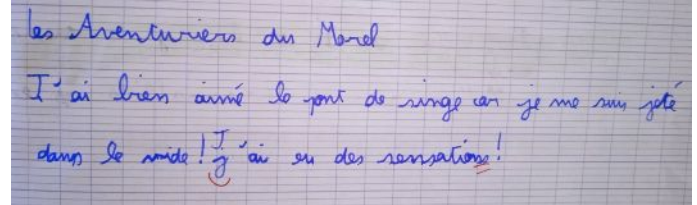 les Aventuriers du Morel
J'ai bien aimé le pont de singe car je me suis jeté
dans le vide ! J'ai eu des sensations !